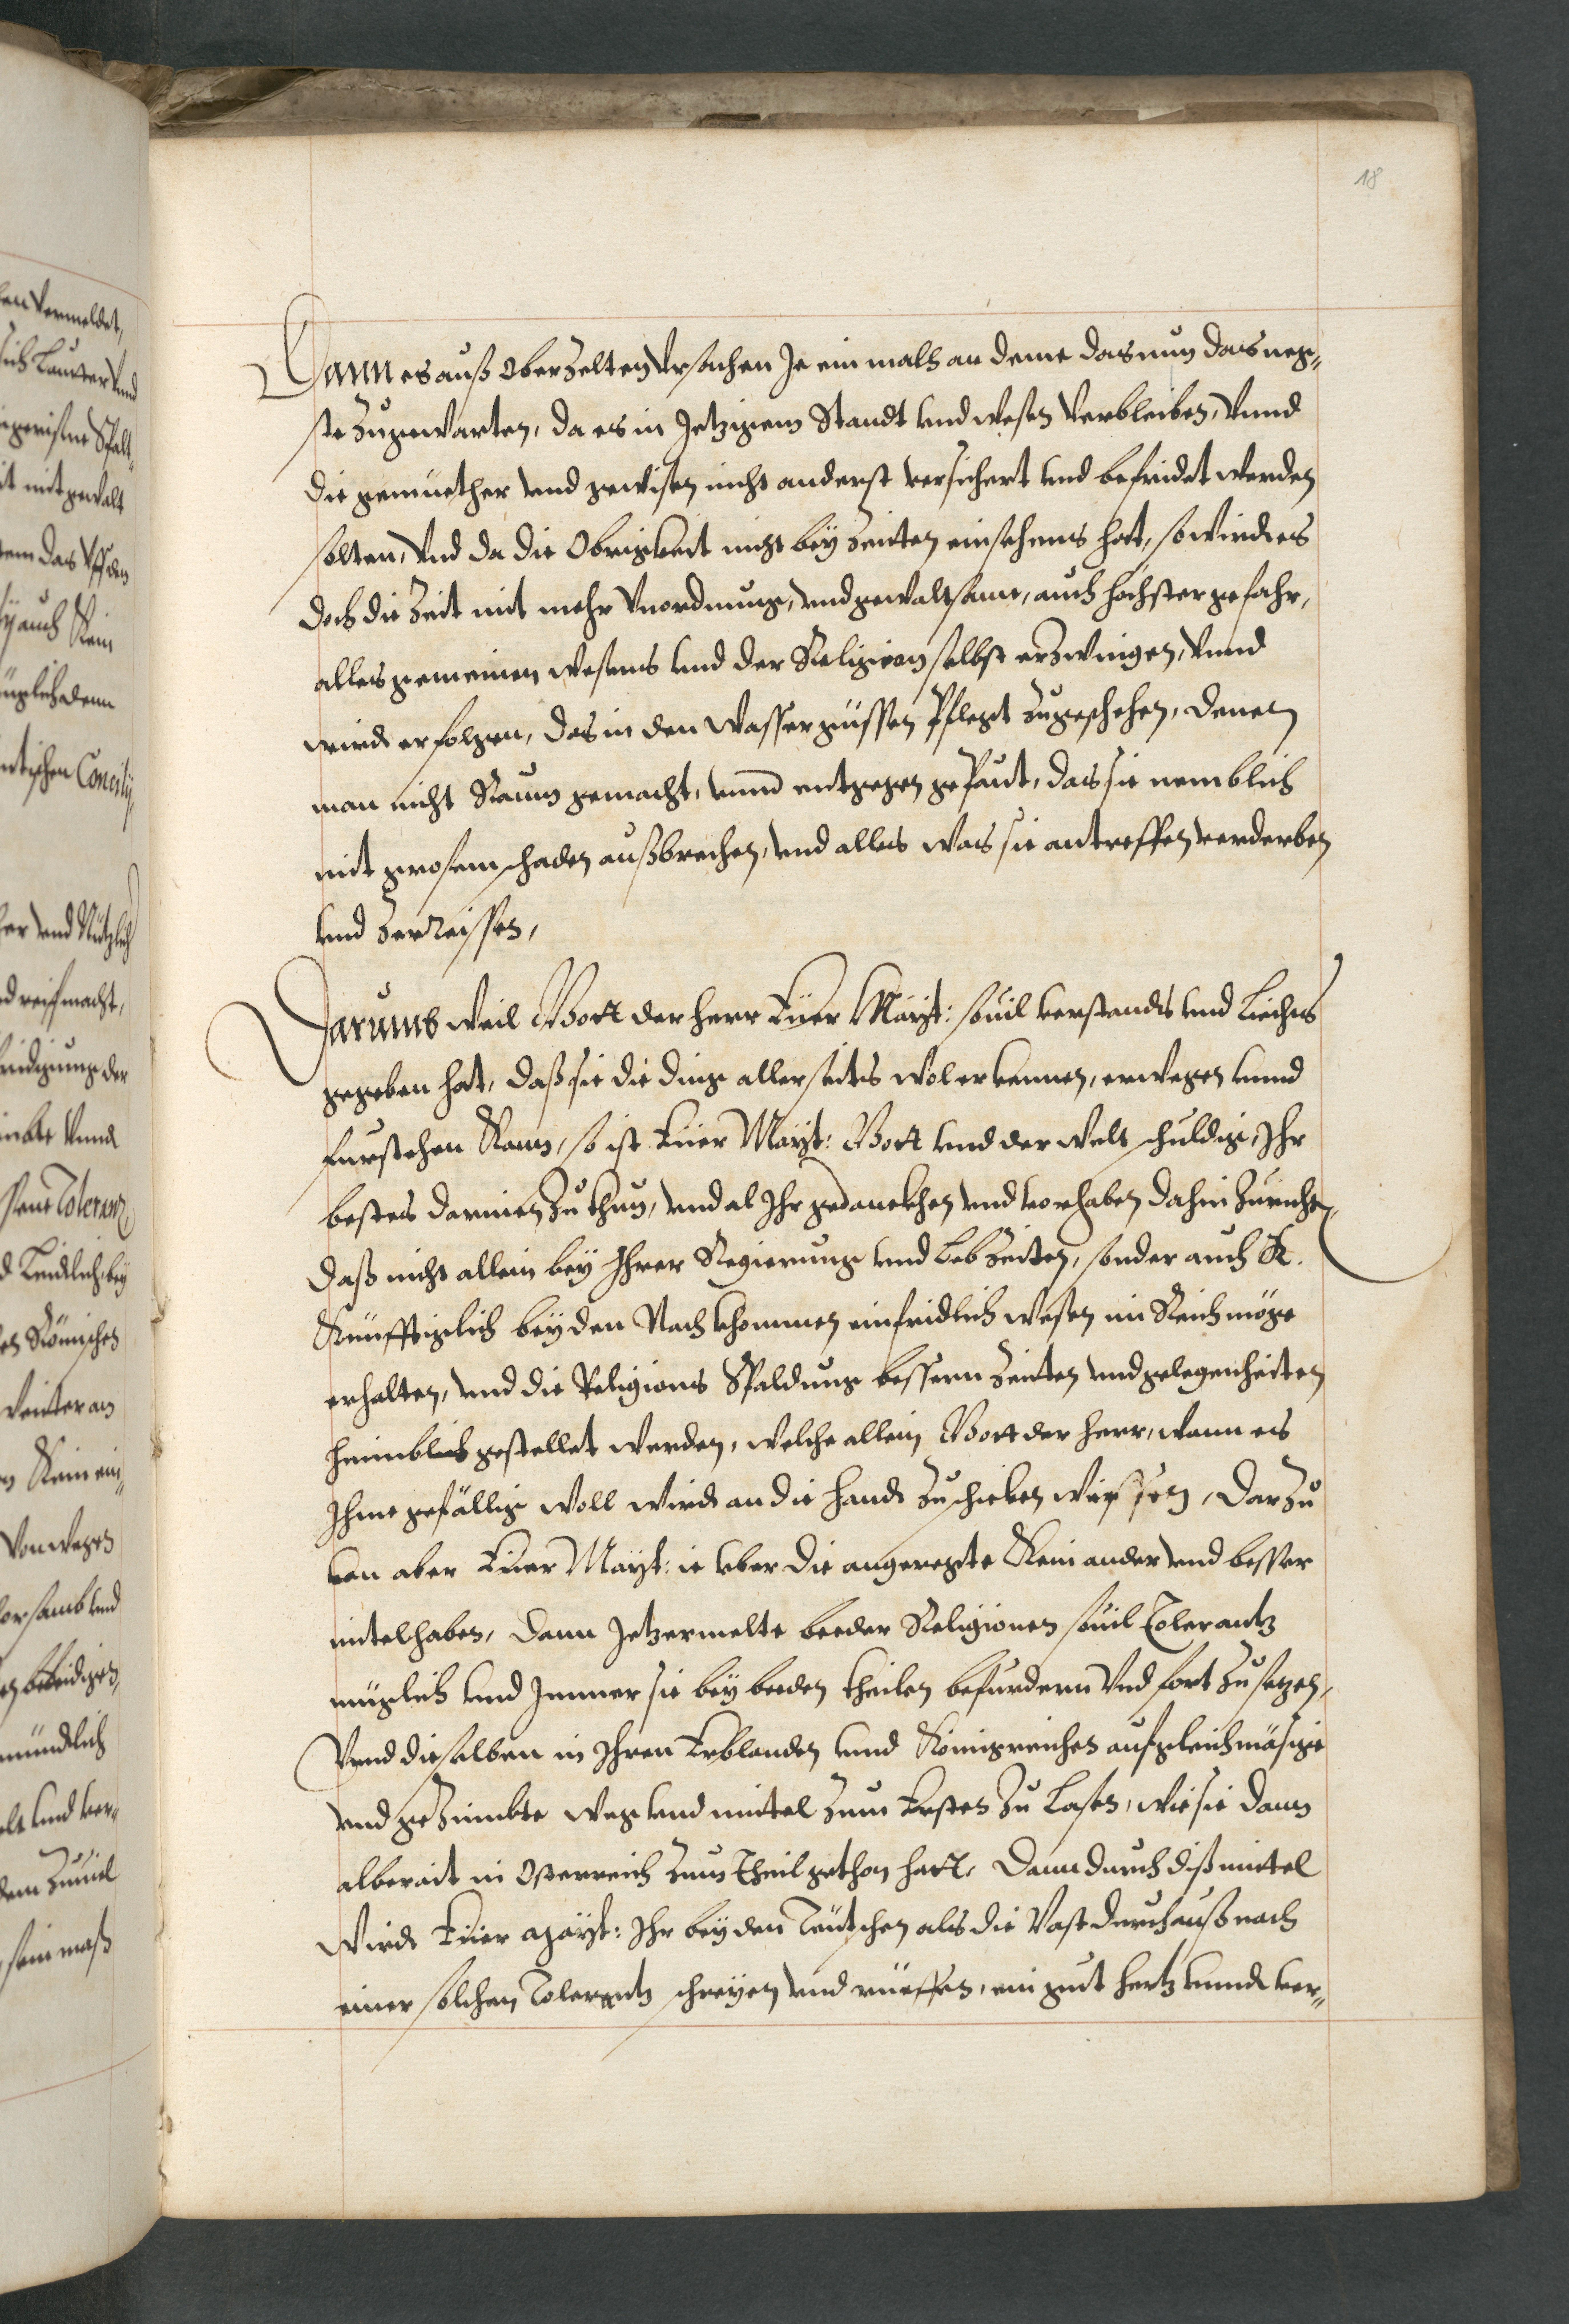 18
Dann es auß oberzelten Vrsachen Je ein mals an deme das nun das neg-
ste zugewarten, da es in Jetzigem Standt vnd wesen Verbleiben, Vnnd
die gemüether vnd gewisen nicht anderst versichert vnd befridet werden
solten, Vnd da die Obrigkeit nicht bey Zeiten einsehens hat, so wirdt es
doch die Zeit mit mehr Vnordnung, vnd gewaltsame, auch höchster gefahr,
alles gemeinen wesens vnd der Religion selbst erzwingen, Vnnd
wirdt erfolgen, das in den Wassergüssen Pflegt zugeschehen, denen
man nicht Raum gemacht, vnnd entgegen gepaut, das sie nemblich
mit grosem schaden außbrechen, vnd alles was sie antreffen verderben
vnd zerreissen,
Darumb weil Gott der herr Euer Mayt: souil verstandts vnd Liechts
gegeben hat, daß sie die ding allerseits wol erkennen, erwegen vnnd
furstehen Kann, so ist Euer Mayt: Gott vnd der welt schuldig, Ihr
bestes darinen zu thun, vnd al Ihr gedanckhen vnd vorhaben dahin zurichten,
daß nicht allein bey Ihrer Regierung vnd Lebzeiten, sonder auch K.
Künfftiglich bey den Nachkhommen ein fridlich wesen im Reich möge
erhalten, vnd die Religions Spaldung bessern Zeiten vnd gelegenheiten
heimblich gestellet werden, welche allein Gott der herr, wann es
Ihme gefällig woll wirdt an die handt zuschicken wissen, Darzu
kan aber Euer Mayt: ie vber die angeregte Kein ander vnd besser
mitel haben, dann Jetzermelte beeder Religionen souil Tolerantz
müglich vnd Immer sie bey beeden theilen befurdern Vnd fort zusetzen,
Vnnd dieselben in Ihren Erblanden vnnd Königreichen auf gleichmäsige
vnd gezimbte weg vnd mittel zum Ersten zu Lasen, wie sie dann
alberait in Osterreich zum Theil gethon hatt, Dann durch diß mittel
wirdt Euer Mayt: Ihr bey den Teutschen als die Vast durchauß nach
einer solchen Tolerantz schreyen vnd rüeffen, ein gut hertz vnnd ver-